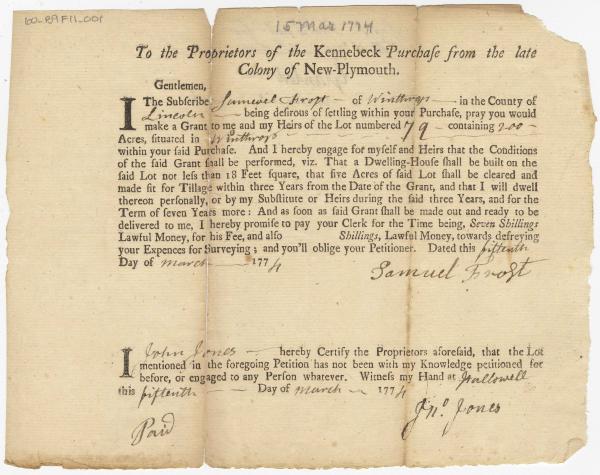 60-89F11-001
15 Mar 1774
To the Proprietors of the Kennebeck Purchase from the late
Colony of New-Plymouth.
Gentlemen,
I The Subscribe Samewel Frost of Winthrop in the County of
Lincoln being desirous of settling within your Purchase, pray you would
make a Grant to me and my Heirs of the Lot numbered 79 containing 200
Acres, situated in Winthrop
within your said Purchase. And I hereby engage for myself and Heirs that the Conditions
of the said Grant shall be performed, viz. That a Dwelling-House shall be built on the
said Lot not less than 18 Feet square, that five Acres of said Lot shall be cleared and
made fit for Tillage within three Years from the Date of the Grant, and that I will dwell
thereon personally, or by my Substitute or Heirs during the said three Years, and for the
Term of seven Years more: And as soon as said Grant shall be made out and ready to be
delivered to me, I hereby promise to pay your Clerk for the Time being, Seven Shillings
Lawful Money, for his Fee, and also Shillings, Lawful Money, towards defreying
your Expences for Surveying; and you'll oblige your Petitioner. Dated this fifteenth
Day of march 1774
Samuel Frost
I John Jones hereby Certify the Proprietors aforesaid, that the Lot
mentioned in the foregoing Petition has not been with my Knowledge petitioned for
before, or engaged to any Person whatever. Witness my Hand at Hallowell
this fifteenth Day of march 1774
Jno. Jones
Paid